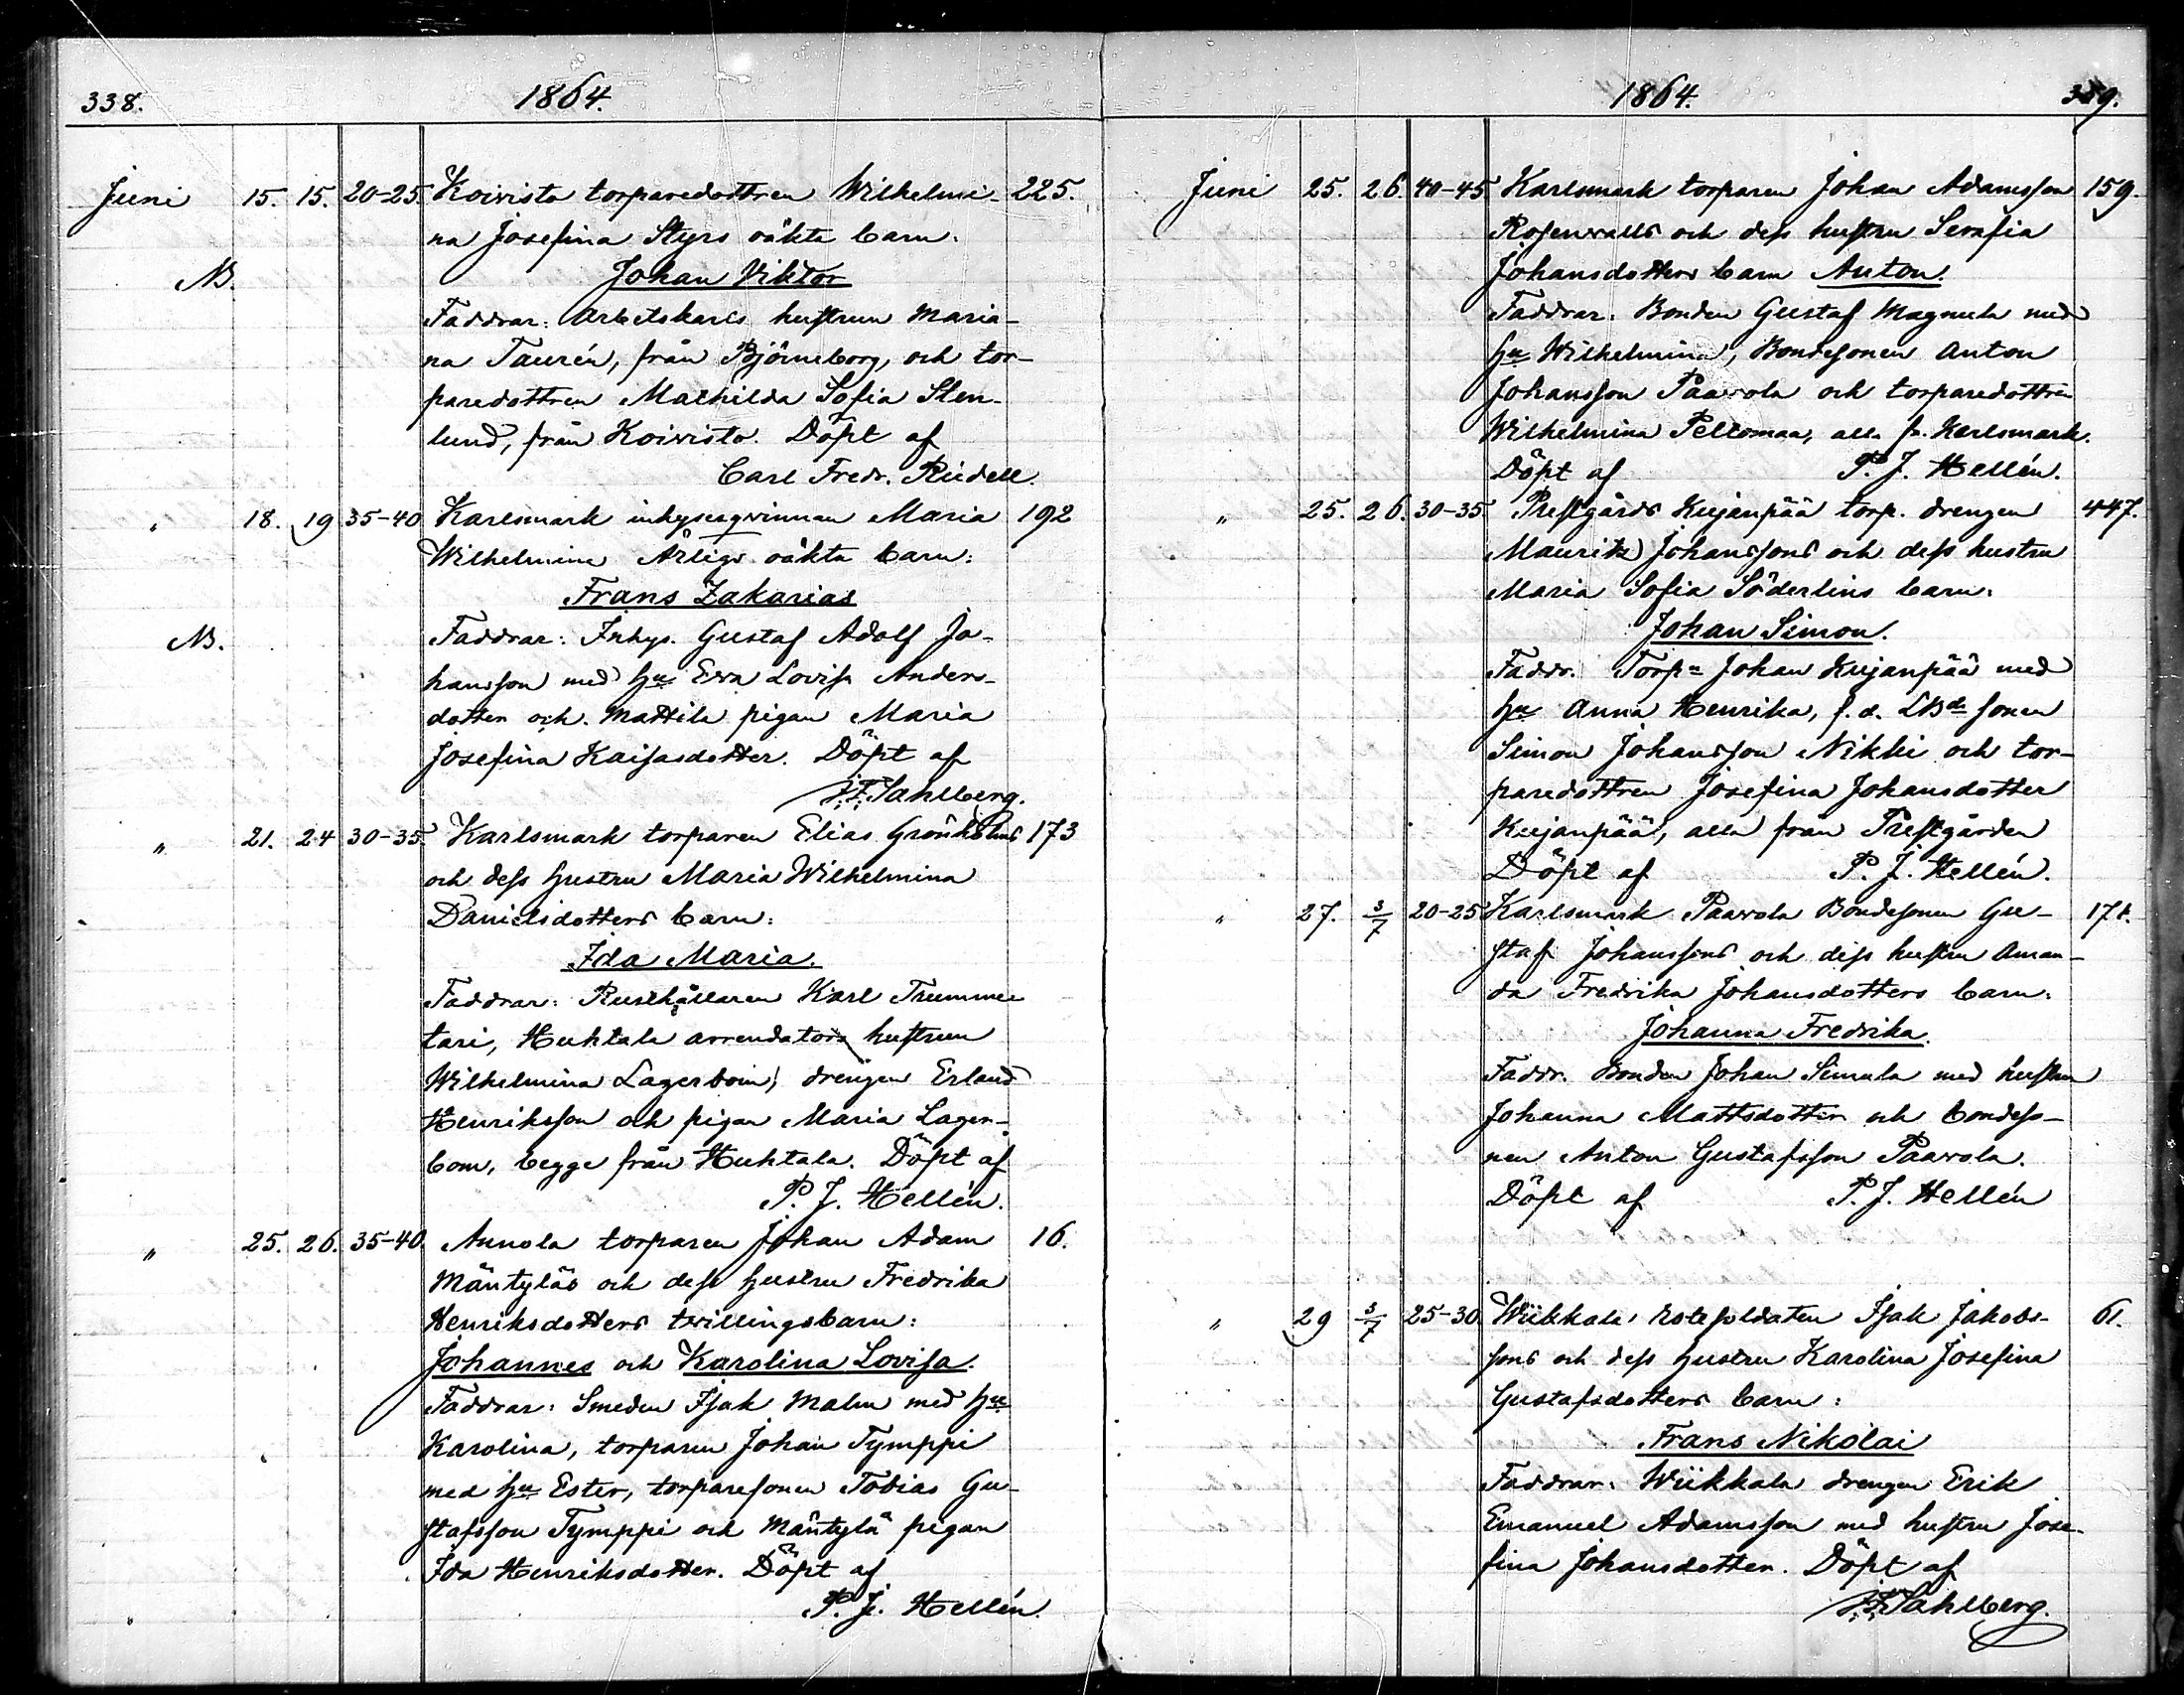 338. 1864.
Juni 15. 15. 20-25. Koivisto torparedottren Wilhelmi- 225.
na Josefina Styrs oäkta barn:
NB. Johan Viktor
Faddrar: Arbetskarls hustrun Maria-
na Taurén, från Björneborg, och tor-
paredottren Mathilda Sofia Sten-
lund, från Koivisto. Döpt af
Carl Fredr. Ridell.
" 18. 19 35-40 Karlsmark inhysesqvinnan Maria 192
Wilhelmina Ärligs oäkta barn:
Frans Zakarias
NB. Faddrar: Inhys. Gustaf Adolf Jo-
hansson med hu Eva Lovisa Anders-
dotter och Mattila pigan Maria
Josefina Kaisasdotter. Döpt af
Sahlberg.
" 21. 24 30-35. Karlsmark torparen Elias Grönholms 173
och dess hustru Maria Wilhelmina
Danielsdotters barn:
Ida Maria.
Faddrar: Rusthållaren Karl Trummee
tari, Huhtala arrendators hustrun
Wilhelmina Lagerbom, drengen Erland
Henriksson och pigan Maria Lager-
bom, begge från Huhtala. Döpt af
P. J. Hellén.
" 25. 26. 35-40. Annola torparen Johan Adam 16.
Mäntyläs och dess hustru Fredrika
Henriksdotters twillingsbarn:
Johannes och Karolina Lovisa.
Faddrar: Smeden Isak Malm med hu
Karolina, torparen Johan Tymppi
med hu Ester, torparesonen Tobias Gu-
stafsson Tymppi och Mäntylä pigan
Ida Henriksdotter. Döpt af
P. J. Hellén.
1864. 339.
Juni 25. 26. 40-45. Karlsmark torparen Johan Adamsson 159.
Rosenwalls och dess hustru Serafia
Johansdotters barn Anton.
Faddrar: Bonden Gustaf Magnula med
hu Wilhelmina, Bondesonen Anton
Johansson Paavola och torparedottren
Wilhelmina Peltomaa, alla fr. Karlsmark.
Döpt af P. J. Hellén.
" 25. 26. 30-35. Prestgårds Kujanpää torp. drengen 447.
Mauritz Johanssons och dess hustru
Maria Sofia Söderlins barn:
Johan Simon.
Faddr. Torpn Johan Kujanpää med
hu Anna Henrika, f. d. LBde sonen
Simon Johansson Nikki och tor-
paredottren Josefina Johansdotter
Kujanpää, alla från Prestgården
Döpt af P. J. Hellén.
" 27. 3/7 20-25 Karlsmark Paavola Bondesonen Gu- 171.
staf Johanssons och dess hustru Aman-
da Fredrika Johansdotters barn:
Johanna Fredrika.
Faddr. Bonden Johan Simula med hustru
Johanna Mattsdotter och bondeso-
nen Anton Gustafsson Paavola.
Döpt af P. J. Hellén
" 29 3/7 25-30 Wiikkala rotesoldaten Isak Jakobs- 61.
sons och dess hustru Karolina Josefina
Gustafsdotters barn:
Frans Nikolai
Faddrar: Wiikkala drengen Erik
Emanuel Adamsson med hustru Jose-
fina Johansdotter. Döpt af
Sahlberg.